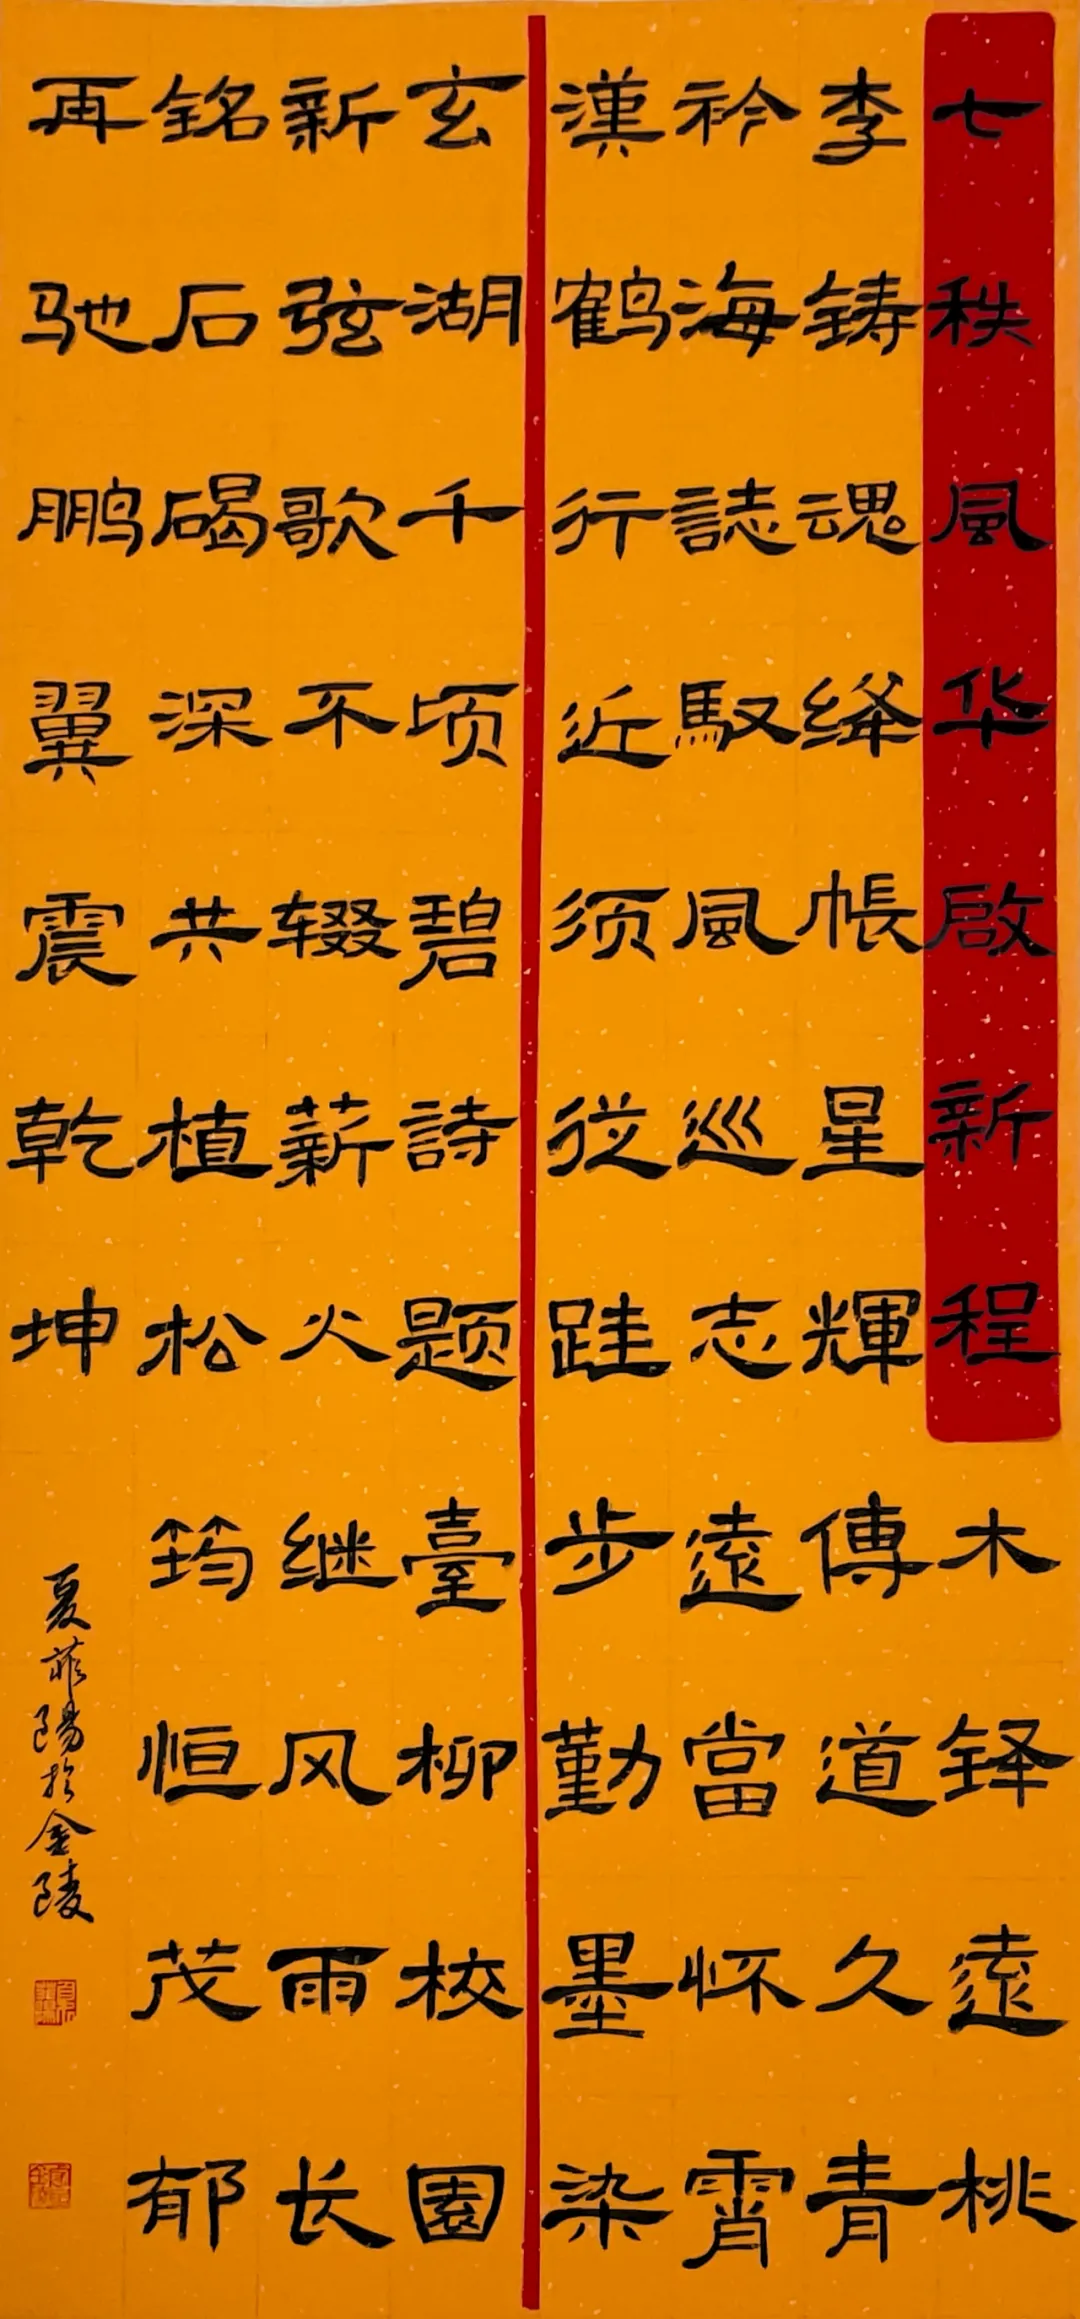 七秩風华啟新程木铎遠桃
李铸魂绛帳星輝傳道久青
衿海誌馭風巡志遠當怀霄
漢鹤行近须從跬步勤墨染
玄湖千顷碧詩题臺柳校園
新弦歌不辍薪火继风雨长
铭石碣深共植松筠恒茂郁
再驰鹏翼震乾坤
夏菲陽於金陵